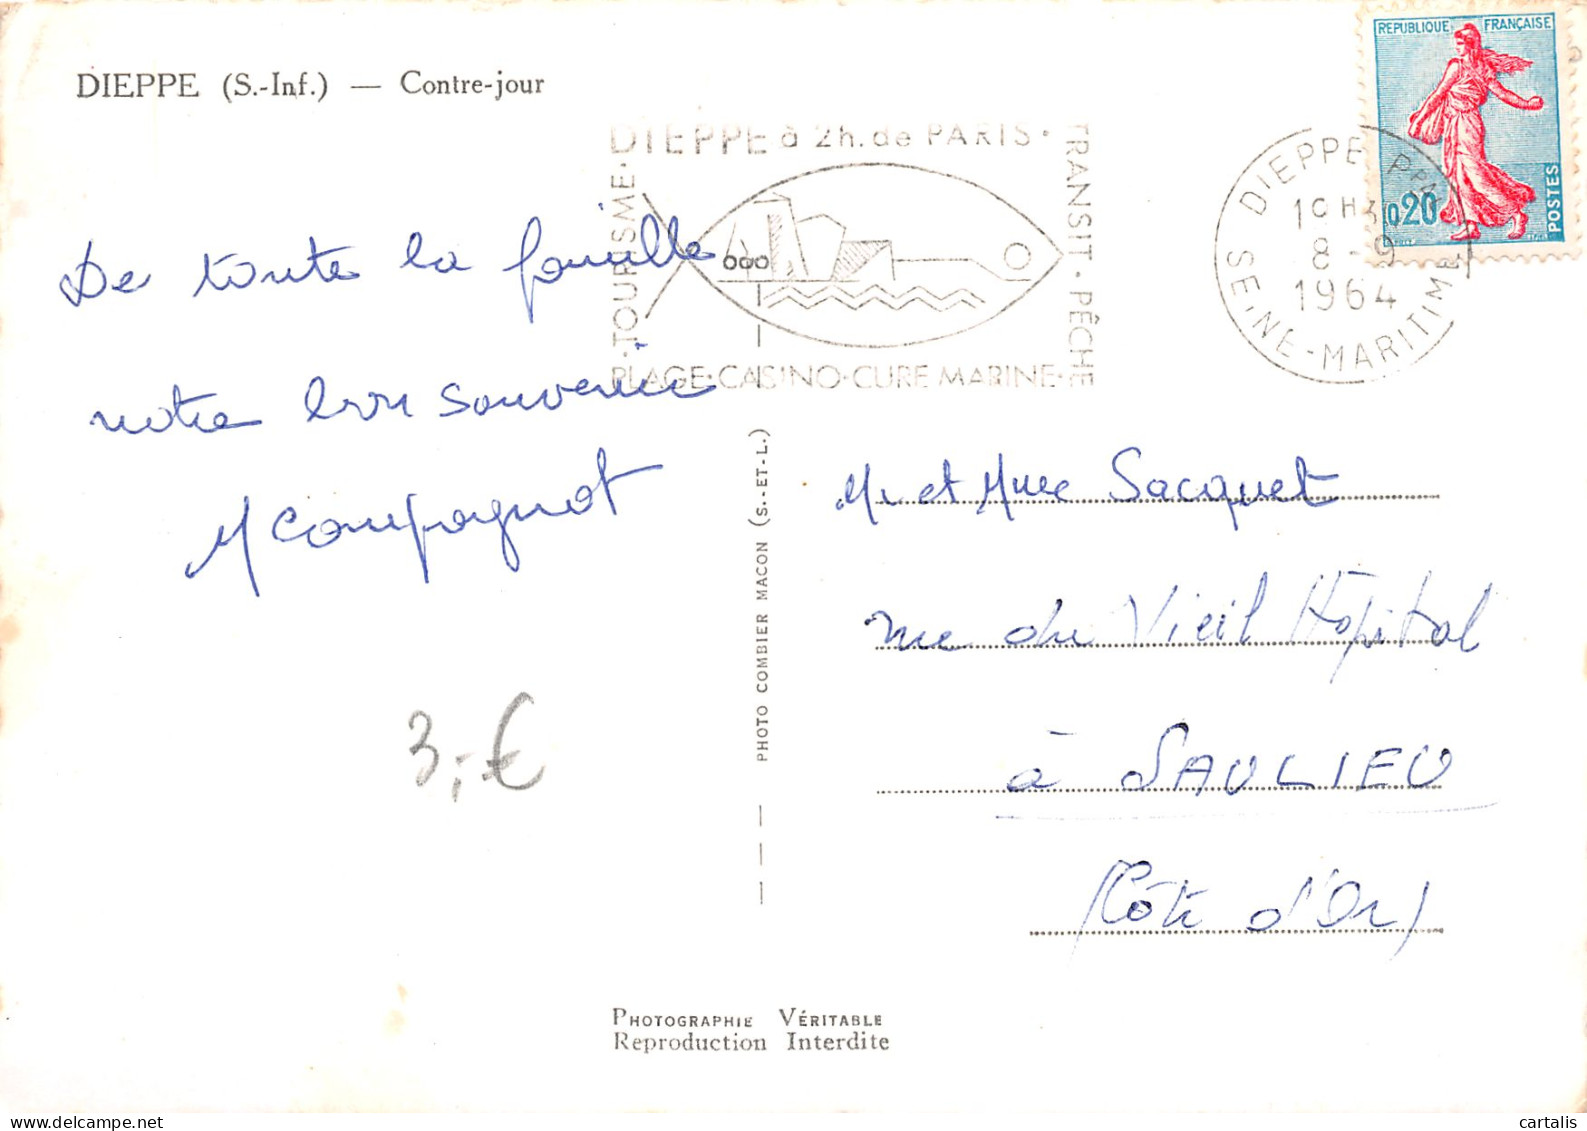 DIEPPE (S.-Inf.) — Contre-jour
De toute la famille
notre bon souvenir
M Compagnot
3,-€
DIEPPE à 2h. de PARIS·
TRANSIT·PÊCHE
·TOURISME·
PLAGE·CASINO·CURE MARINE·
DIEPPE PPAL
8-9
1964
SEINE-MARITIME
REPUBLIQUE FRANÇAISE
0,20
POSTES
PHOTO COMBIER MACON (S.-ET-L.)
Mr et Mme Sacquet
rue du Vieil Hôpital
à SAULIEU
(Côte d'Or)
PHOTOGRAPHIE VÉRITABLE
Reproduction Interdite
cartalis